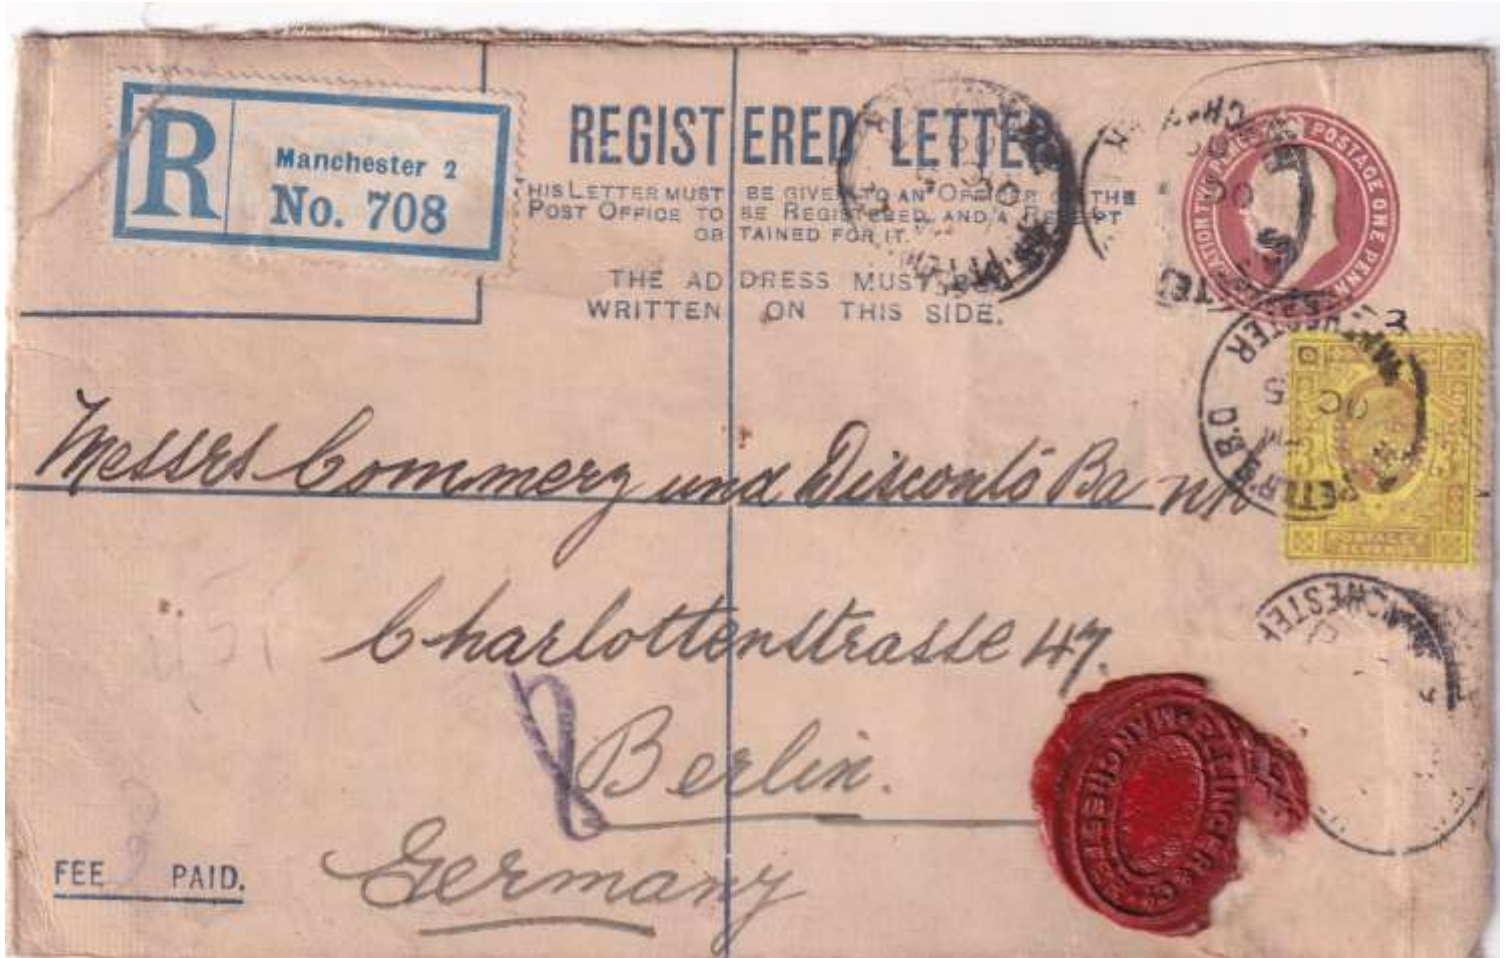 R
Manchester 2
No. 708
REGISTERED LETTER
THIS LETTER MUST BE GIVEN TO AN OFFICER OF THE
POST OFFICE TO BE REGISTERED, AND A RECEIPT
OBTAINED FOR IT.
THE ADDRESS MUST BE
WRITTEN ON THIS SIDE.
POSTAGE ONE PENNY
3
MANCHESTER
OC 5
ST PETER'S S.B.O
POSTAGE &
REVENUE
Messrs Commerz und Disconto Bank
Charlottenstrasse 47.
Berlin.
Germany
MANCHESTER
MANCHESTER
FEE PAID.